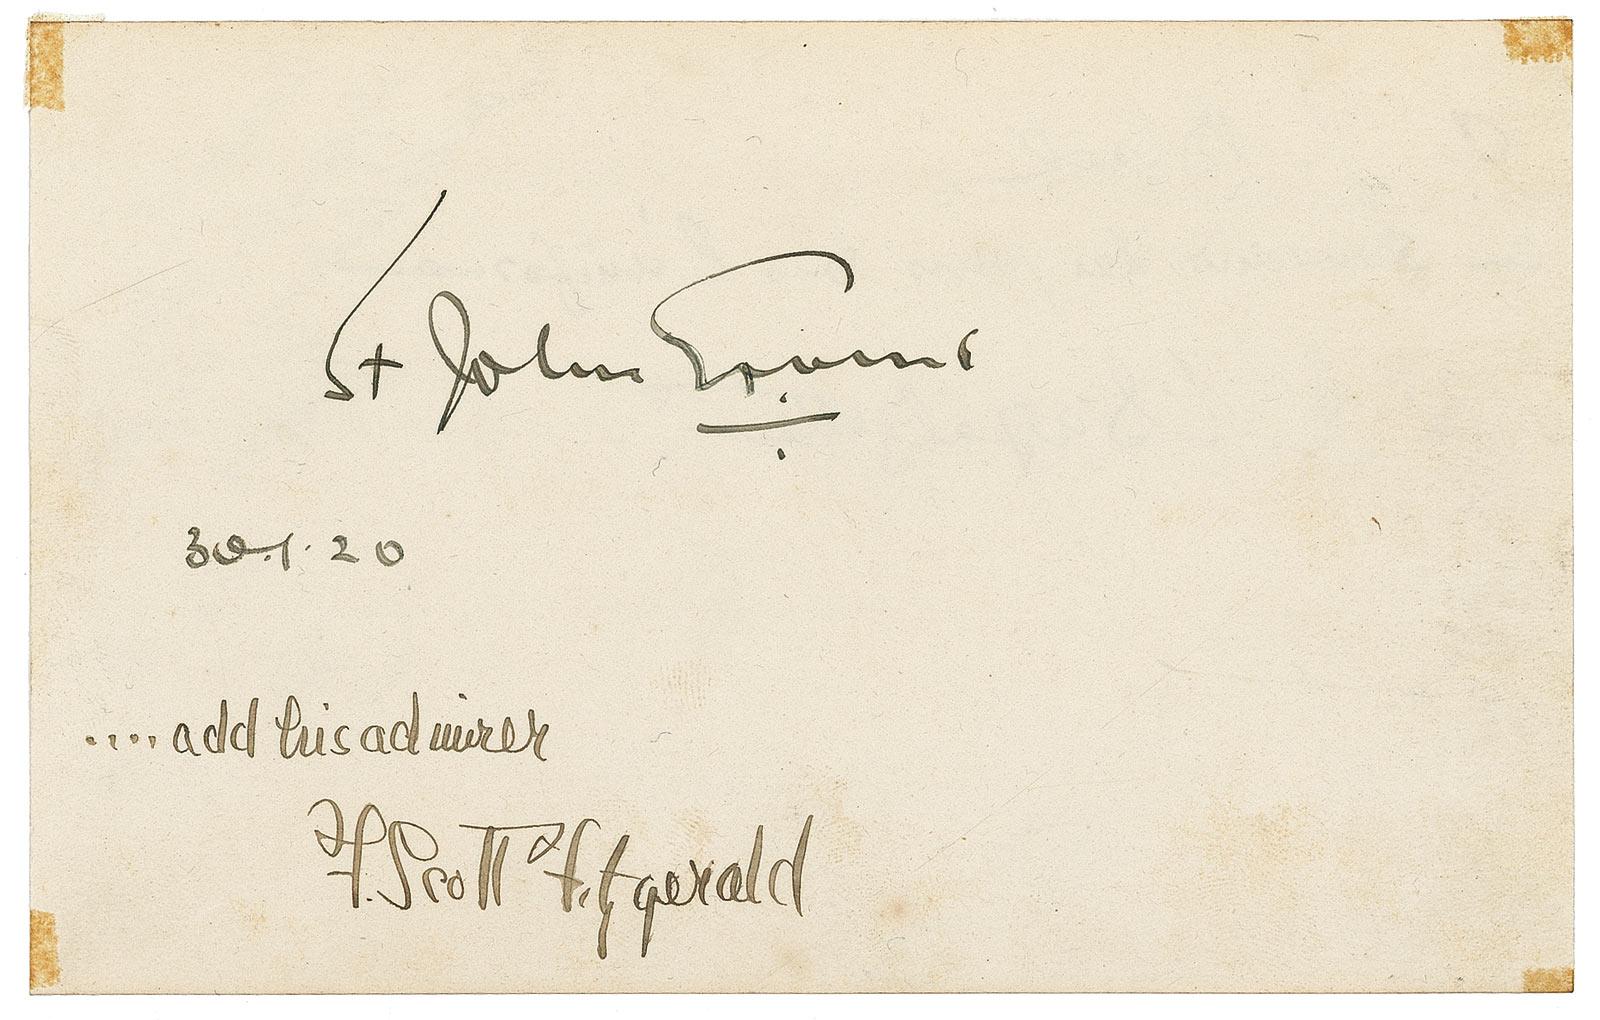 St John Ervine
30.1.20
....add his admirer
F. Scott Fitzgerald